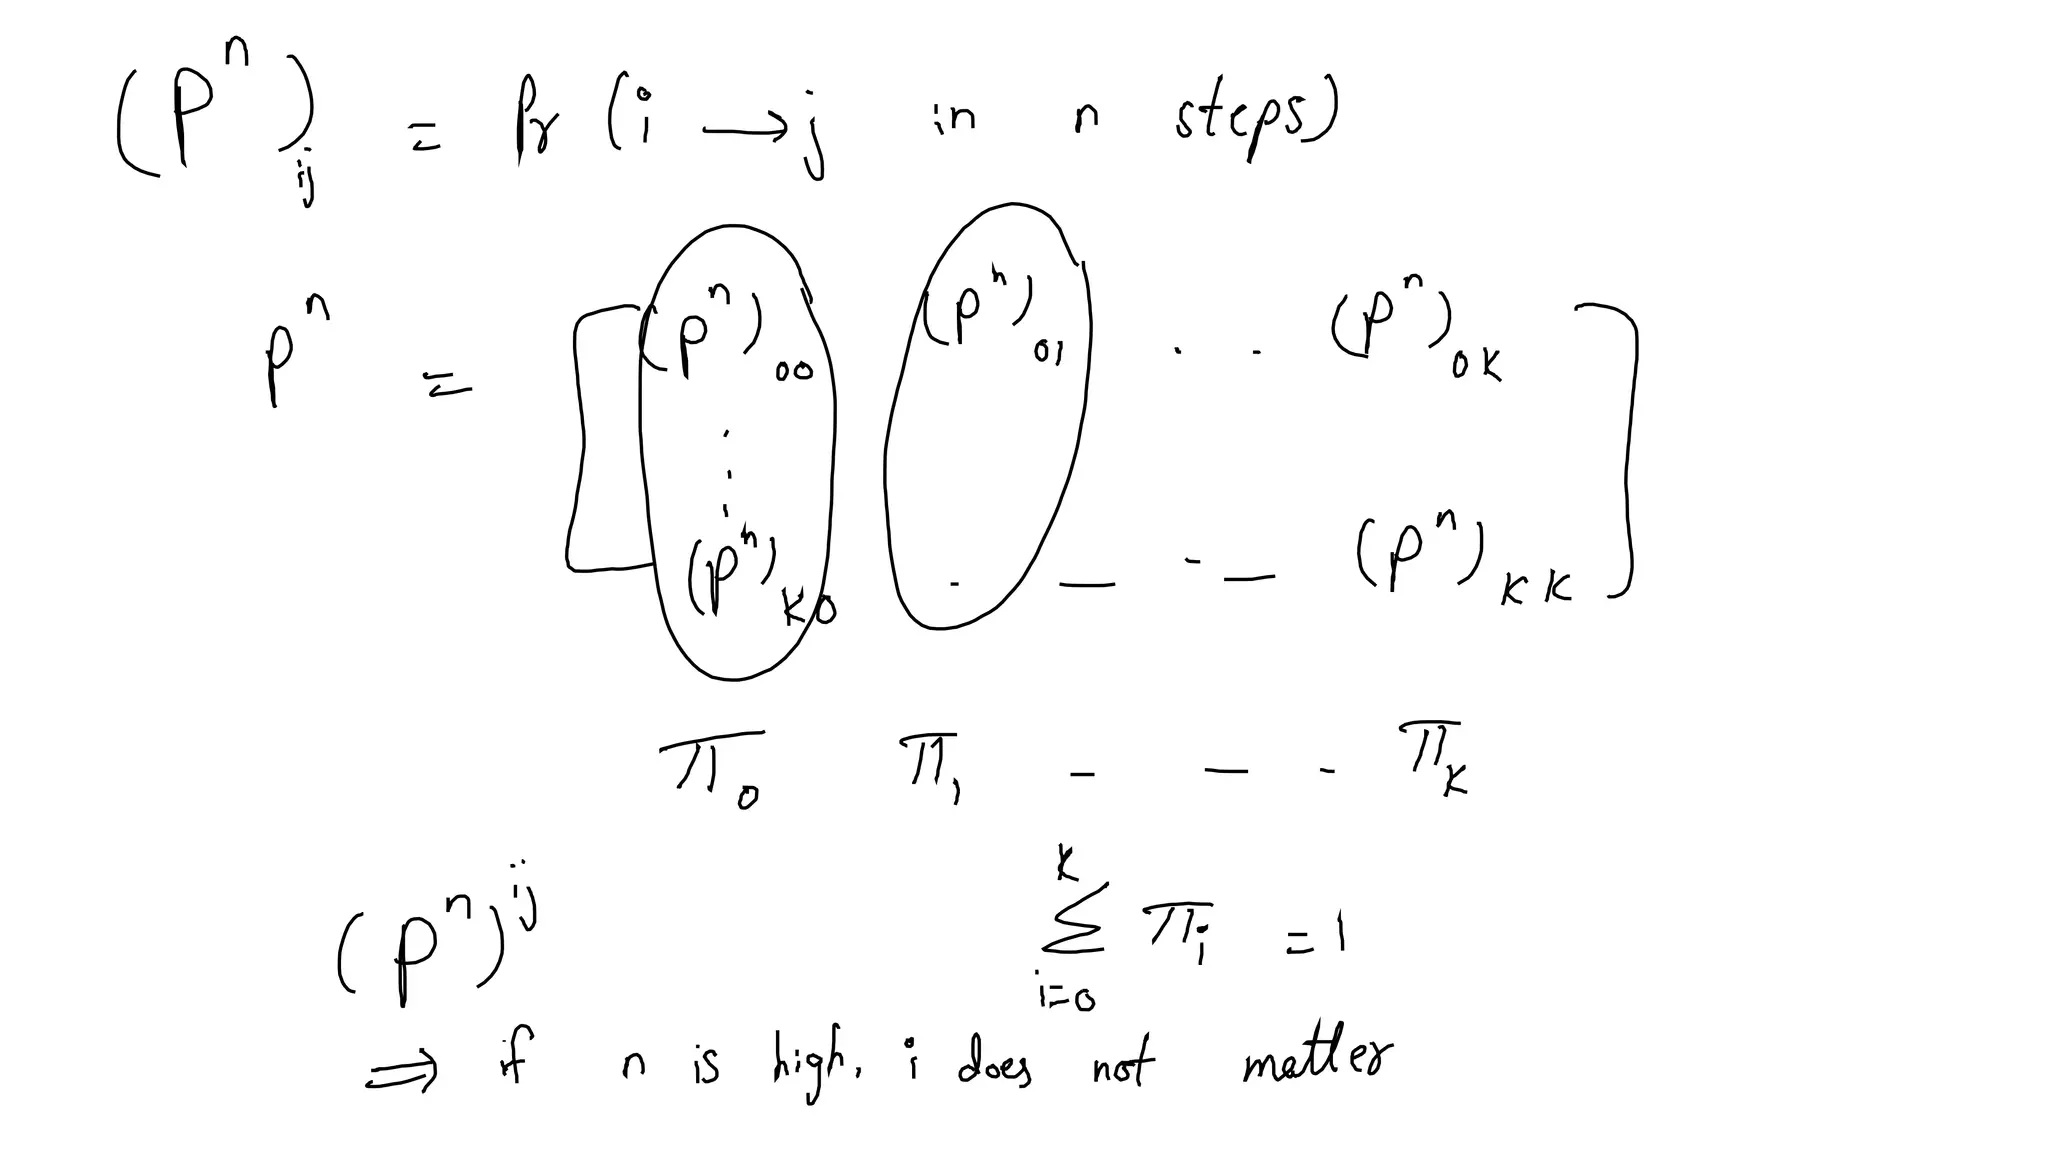 (P^n)_ij = Pr (i → j in n steps)
P^n = [ (P^n)_00 (P^n)_01 . . (P^n)_0K ]
. . .
(P^n)_K0 . — - — (P^n)_KK
π_0 π_1 - — - π_K
(P^n)^ij
K
∑ π_i = 1
i=0
⇒ if n is high, i does not matter